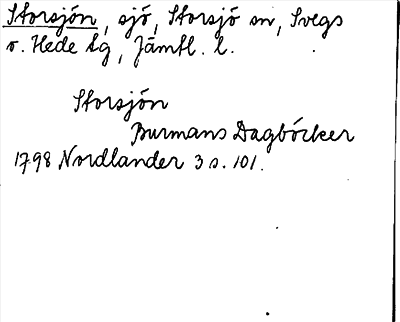 Storsjön, sjö, Storsjö sn, Svegs
o. Hede tg, Jämtl. l.
Storsjön
Burmans Dagböcker
1798 Nordlander 3 s. 101.